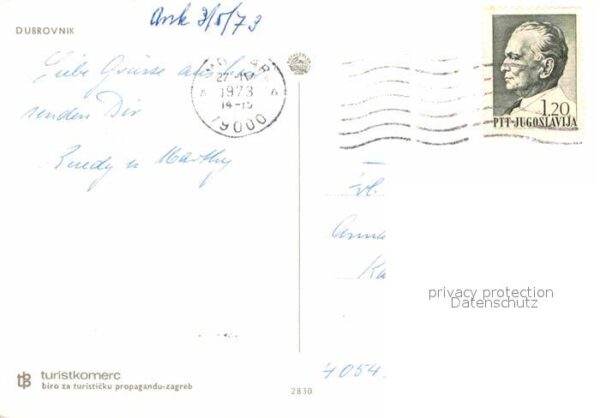 Ank 3/5/73
DUBROVNIK
Liebe Grüsse aus
senden Dir
Ruedy u Marthy
MOSTAR
27-4
1973
14-15
79000
1.20
PTT-JUGOSLAVIJA
Anna
4054
privacy protection
Datenschutz
tb turistkomerc
biro za turističku propagandu-zagreb
2830